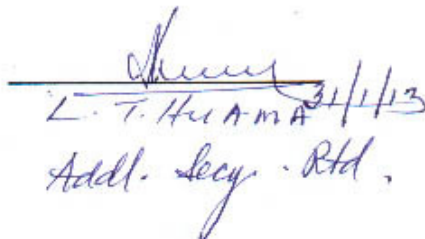 L. T. HUAMA 31/1/13
Addl. Secy. Rtd.